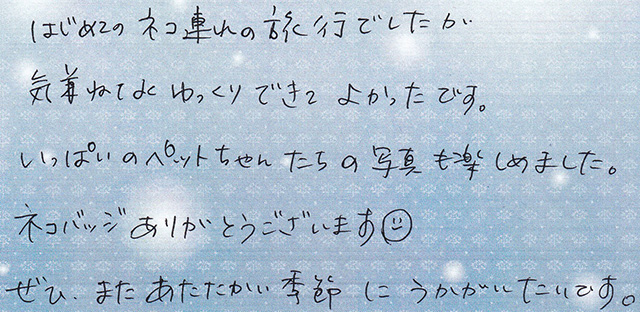 はじめての ネコ連れの旅行でしたが
気兼ねなく ゆっくりできて よかったです。
いっぱいのペットちゃんたちの写真も楽しめました。
ネコバッジありがとうございます☺
ぜひ、またあたたかい季節にうかがいたいです。